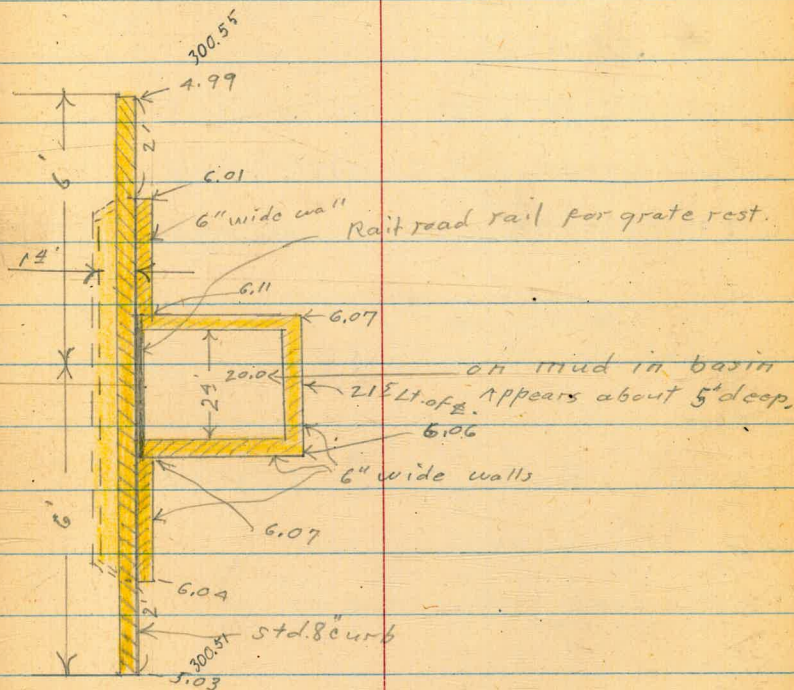 300.55
4.99
6'
2'
6.01
6" wide wall
Railroad rail for grate rest.
6.11
6.07
on mud in basin
20.0
Lt. of ℄. Appears about 5" deep.
6.06
6" wide walls
6'
6.07
6.04
2'
std. 8" curb
300.51
5.03